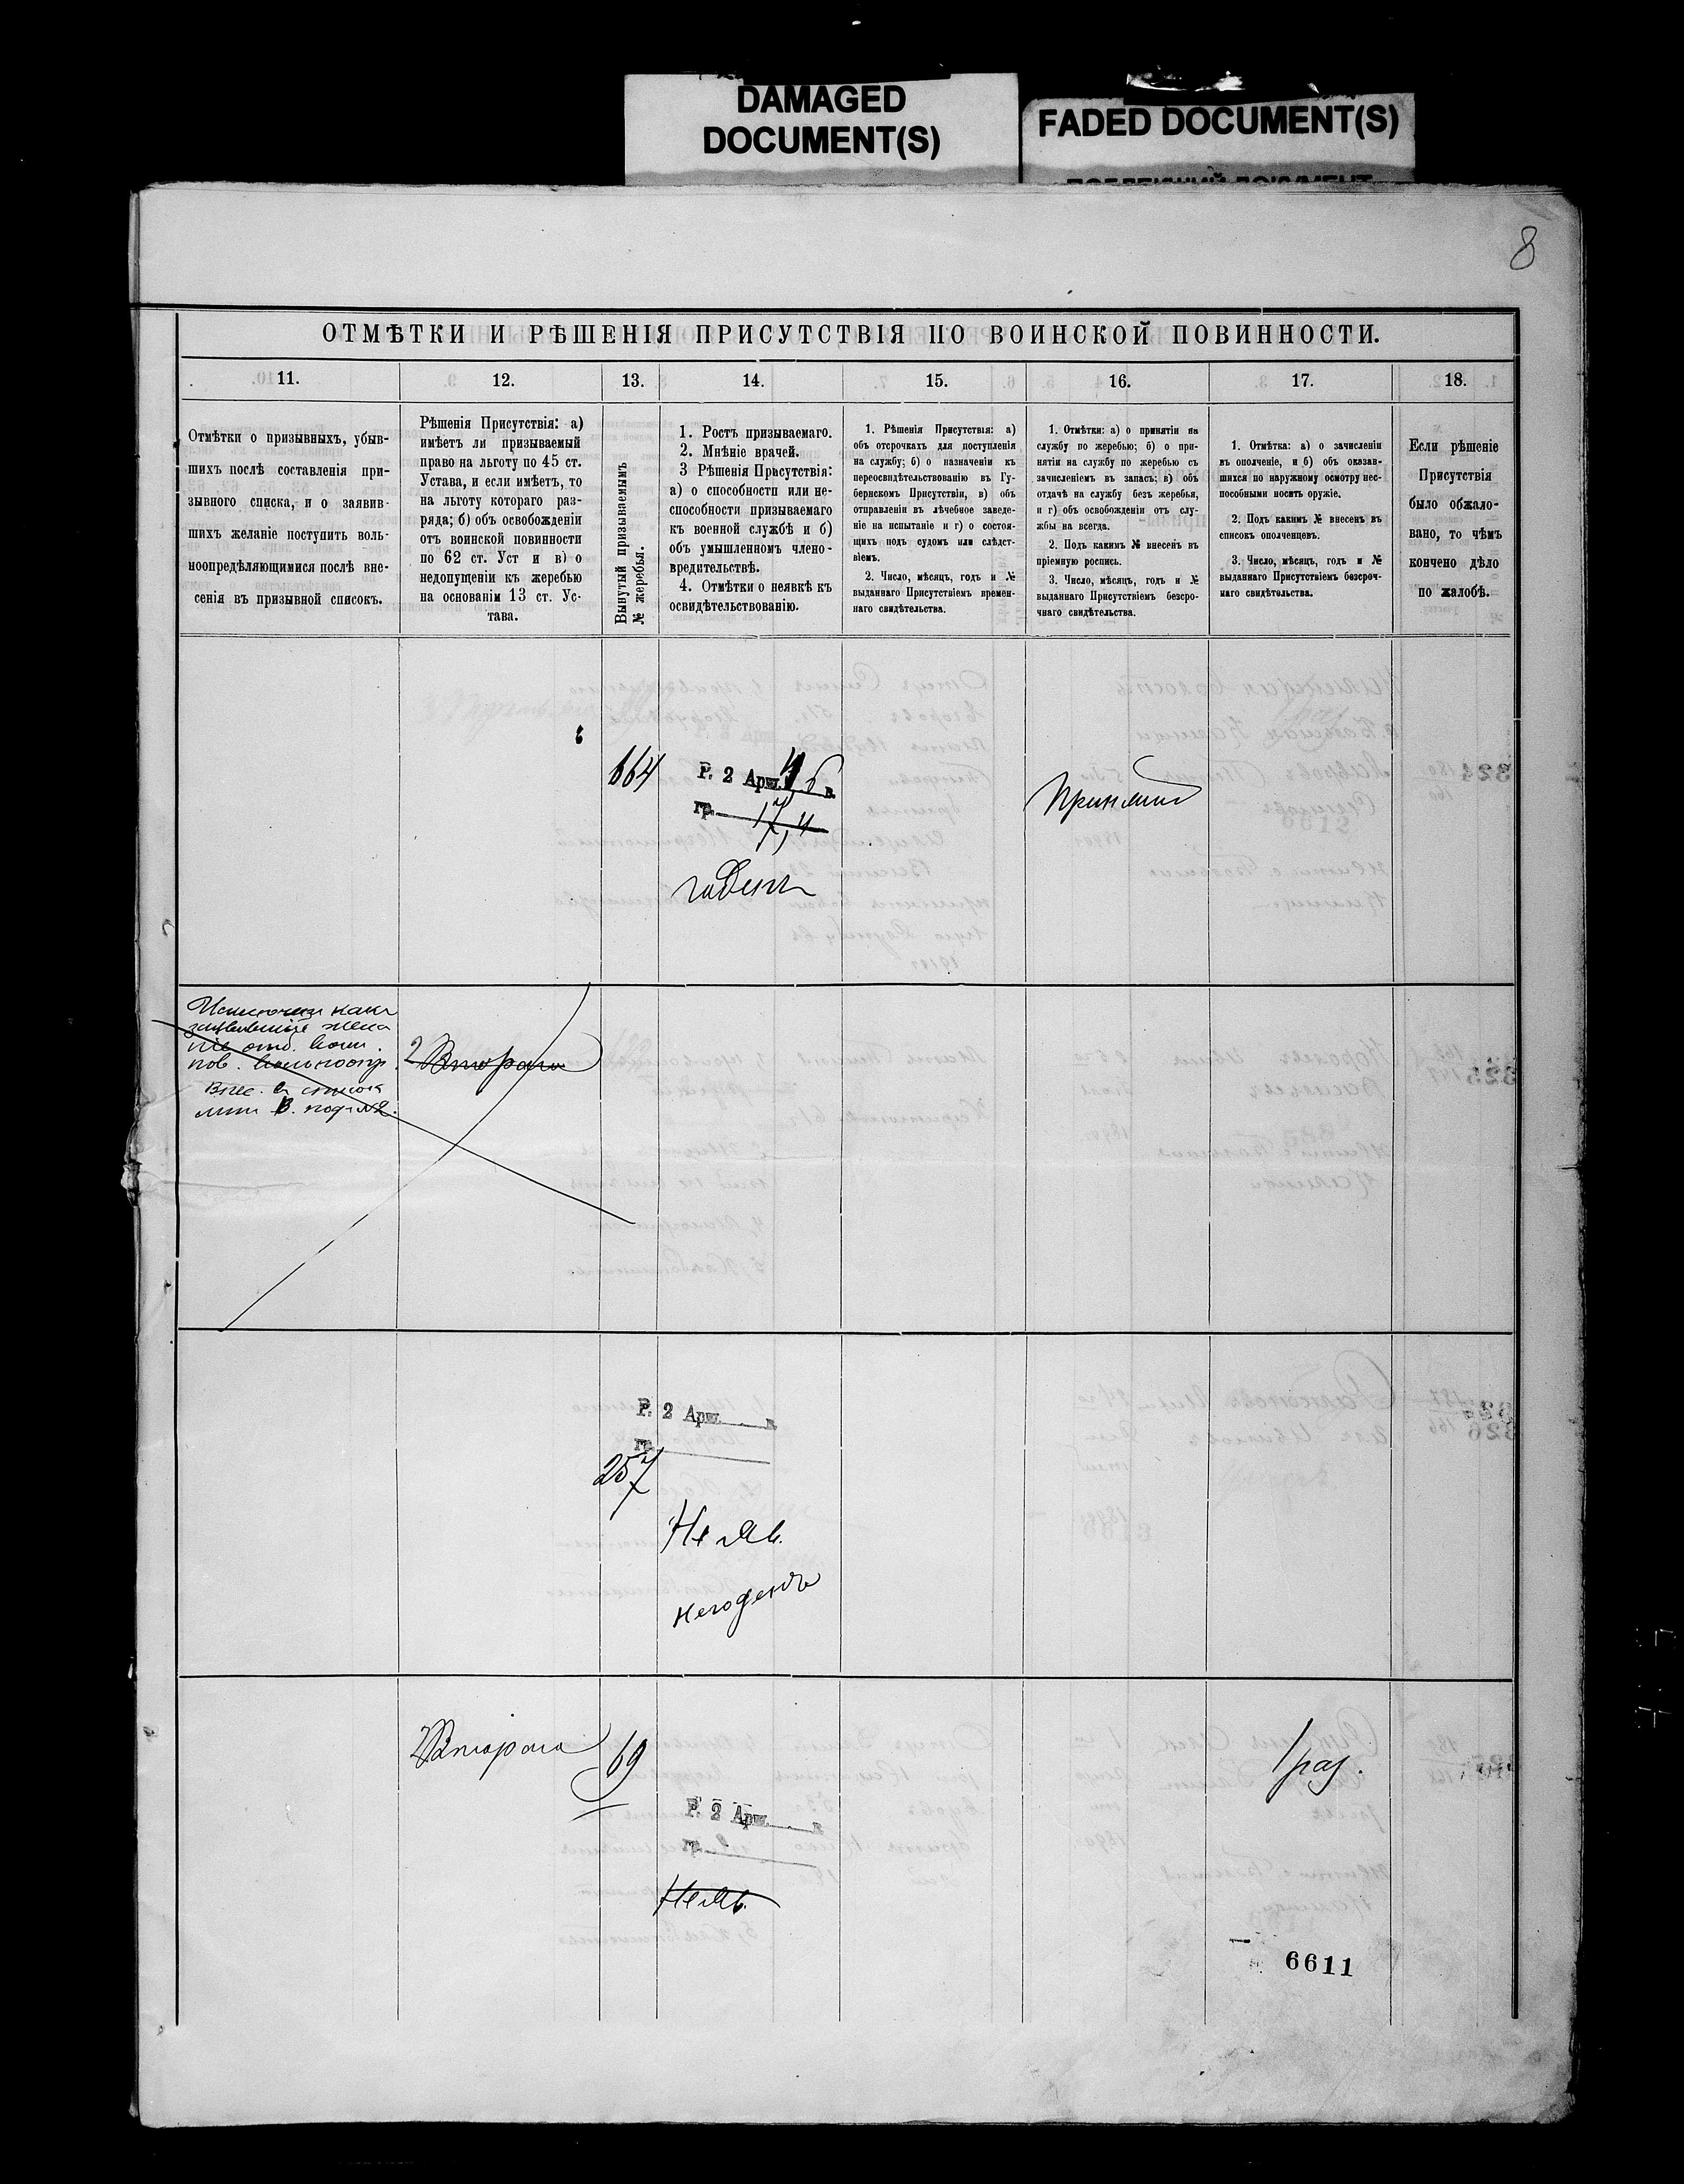 DAMAGED
DOCUMENT(S)
FADED DOCUMENT(S)
8
ОТМѢТКИ И РѢШЕНІЯ ПРИСУТСТВІЯ ПО ВОИНСКОЙ ПОВИННОСТИ.
11.
12.
13.
14.
15.
16.
17.
18.
Отмѣтки о призывныхъ, убыв-
шихъ послѣ составленія при-
зывного списка, и о заявив-
шихъ желаніе поступить воль-
ноопредѣляющимися послѣ вне-
сенія въ призывной списокъ.
Рѣшенія Присутствія: а)
имѣетъ ли призываемый
право на льготу по 45 ст.
Устава, и если имѣетъ, то
на льготу котораго раз-
ряда; б) объ освобожденіи
отъ воинской повинности
по 62 ст. Уст и в) о
недопущеніи къ жеребью
на основаніи 13 ст. Ус-
тава.
Вынутый призываемымъ
№ жеребья.
1. Ростъ призываемаго.
2. Мнѣніе врачей.
3 Рѣшенія Присутствія:
а) о способности или не-
способности призываемаго
къ военной службѣ и б)
объ умышленномъ члено-
вредительствѣ.
4. Отмѣтки о неявкѣ къ
освидѣтельствованію.
1. Рѣшенія Присутствія: а)
объ отсрочкахъ для поступленія
на службу; б) о назначеніи къ
переосвидѣтельствованію въ Гу-
бернскомъ Присутствіи, в) объ
отправленіи въ лѣчебное заведе-
ніе на испытаніе и г) о состоя-
щихъ подъ судомъ или слѣдст-
віемъ.
2. Число, мѣсяцъ, годъ и №
выданнаго Присутствіемъ времен-
наго свидѣтельства.
1. Отмѣтки: а) о принятіи на
службу по жеребью; б) о при-
нятіи на службу по жеребью съ
зачисленіемъ въ запасъ; в) объ
отдачѣ на службу безъ жеребья,
и г) объ освобожденіи отъ слу-
жбы на всегда.
2. Подъ какимъ № внесенъ въ
пріемную роспись.
3. Число, мѣсяцъ, годъ и №
выданнаго Присутствіемъ безсро-
чнаго свидѣтельства.
1. Отмѣтка: а) о зачисленіи
въ ополченіе, и б) объ оказав-
шихся по наружному осмотру нес-
пособными носить оружіе.
2. Подъ какимъ № внесенъ въ
списокъ ополченцевъ.
3. Число, мѣсяцъ, годъ и №
выданнаго Присутствіемъ безсроч-
наго свидѣтельства.
Если рѣшеніе
Присутствія
было обжало-
вано, то чѣмъ
кончено дѣло
по жалобѣ.
664
Р. 2 Арш. 4,5 в.
гр. 17,4
годенъ
Принятъ
пов. вольноопр.
Внес. въ списокъ
2 Второго
Р. 2 Арш. в.
гр.
257
Не яв.
негоденъ
2 Второго
69
Р. 2 Арш. в.
гр.
Не яв.
1 раз.
6611